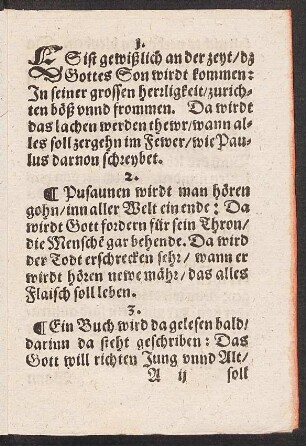 1.
ES ist gewißlich an der zeyt/ dz
Gottes Son wirdt kommen:
In seiner grossen herzligkeit/ zurich-
ten böß vnnd frommen. Da wirdt
das lachen werden thewr/ wann al-
les soll zergehn im Fewer/ wie Pau-
lus daruon schreybet.
2.
¶ Pusaunen wirdt man hören
gohn/ inn aller Welt ein ende: Da
wirdt Gott fordern für sein Thron/
die Menschẽ gar behende. Da wird
der Todt erschrecken sehr/ wann er
wirdt hören newe mähr/ das alles
Flaisch soll leben.
3.
¶ Ein Buch wird da gelesen bald/
darinn da steht geschriben: Das
Gott will richten Jung vnnd Alt/
A ij soll